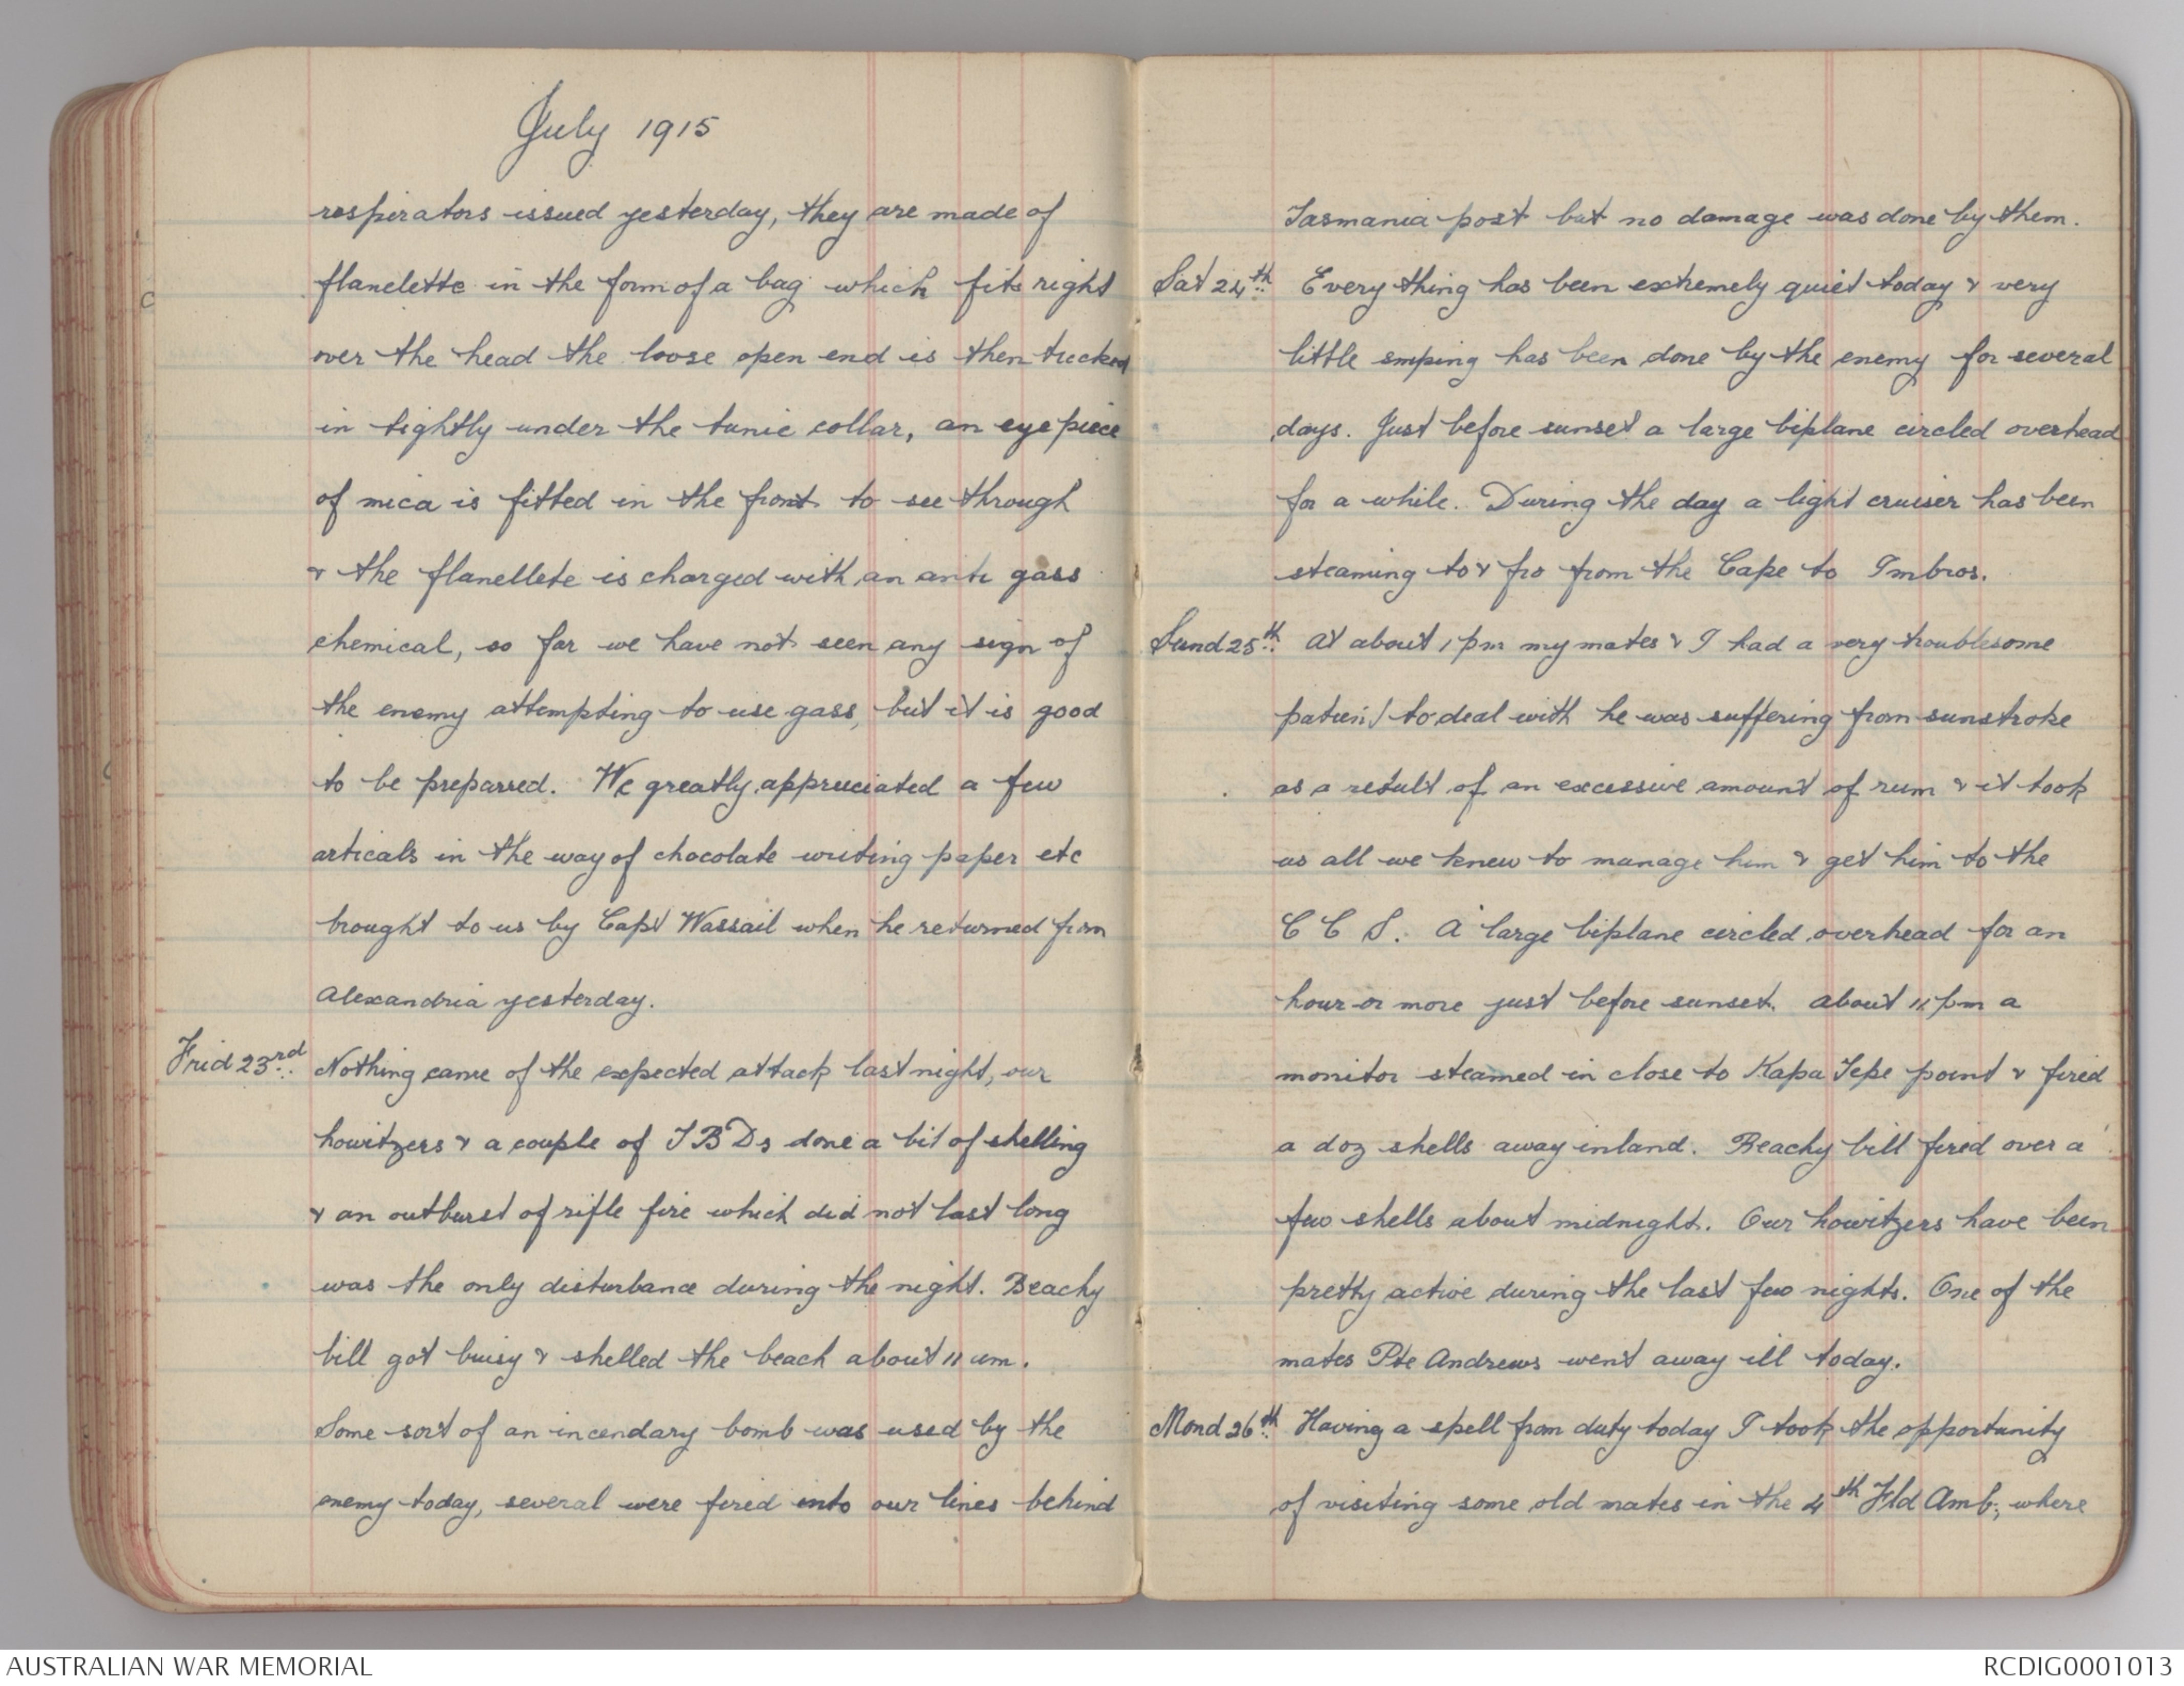 July 1915
respirators issued yesterday, they are made of
flanelette in the form of a bag which fits right
over the head the loose open end is then tucked
in tightly under the tunic collar, an eye piece
of mica is fitted in the front to see through
& the flanellete is charged with an anti gass
chemical, so far we have not seen any sign of
the enemy attempting to use gass, but it is good
to be preparred. We greatly appreciated a few
articals in the way of chocolate writing paper etc
brought to us by Capt Wassail when he returned from
Alexandria yesterday.
Frid 23rd. Nothing came of the expected attack last night, our
howitzers & a couple of T B Ds done a bit of shelling
& an outburst of rifle fire which did not last long
was the only disturbance during the night. Beachy
bill got buisy & shelled the beach about 11 am.
Some sort of an incendary bomb was used by the
enemy today, several were fired into our lines behind
Tasmania post but no damage was done by them.
Sat 24th. Every thing has been extremely quiet today & very
little sniping has been done by the enemy for several
days. Just before sunset a large biplane circled overhead
for a while. During the day a light cruiser has been
steaming to & fro from the Cape to Imbros.
Sund 25th. At about 1 pm my mates & I had a very troublesome
patient to deal with he was suffering from sunstroke
as a result of an excessive amount of rum & it took
us all we knew to manage him & get him to the
C C S. A large biplane circled overhead for an
hour or more just before sunset. About 11 pm a
monitor steamed in close to Kapa Tepe point & fired
a doz shells away inland. Beachy bill fired over a
few shells about midnight. Our howitzers have been
pretty active during the last few nights. One of the
mates Pte Andrews went away ill today.
Mond 26th. Having a spell from duty today I took the opportunity
of visiting some old mates in the 4th Fld Amb; where
AUSTRALIAN WAR MEMORIAL
RCDIG0001013